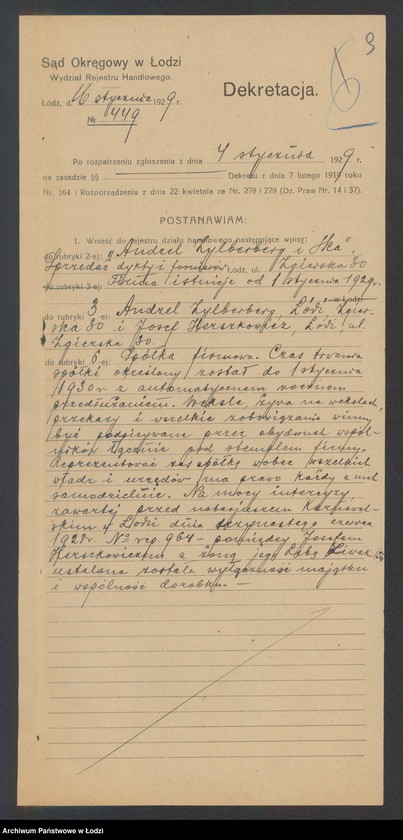 3
Sąd Okręgowy w Łodzi
Wydział Rejestru Handlowego.
Łódź, d. 16 stycznia 1929 r.
№ 449
Dekretacja.
Po rozpatrzeniu zgłoszenia z dnia 4 stycznia 1929 r.
na zasadzie §§ Dekretu z dnia 7 lutego 1919 roku
Nr. 164 i Rozporządzenia z dnia 22 kwietnia za Nr. 278 i 279 (Dz. Praw Nr. 14 i 37).
POSTANAWIAM:
1. Wnieść do rejestru działu handlowego następujące wpisy:
do rubryki 2-ej: „Andzel Zylberberg i S-ka".
Sprzedaż dykty i fornierów Łódź, ul. Zgierska 30
do rubryki 3-ej: Firma istnieje od 1 stycznia 1929 r.
do rubryki 3 Andzel Zylberberg, Łódź, Zgier-
ska 30 i Josef Herszkowicz, Łódź, ul.
Zgierska 30
do rubryki 6-ej: Spółka firmowa. Czas trwania
spółki określony został do 1 stycznia
1930 r. z automatycznem rocznem
przedłużaniem. Weksle, żyra na wekslach,
przekazy i wszelkie zobowiązania winny
być podpisywane przez obydwuch wspól-
ników łącznie pod stemplem firmy.
Reprezentować zaś spółkę wobec wszelkich
władz i urzędów ma prawo każdy z nich
samodzielnie. Na mocy intercyzy,
zawartej przed notarjuszem
w Łodzi dnia trzynastego czerwca
1928 r. № rep. 964 – pomiędzy Josefem
Herszkowiczem a żoną jego
ustalona została wyłączność majątku
i wspólność dorobku. —
Archiwum Państwowe w Łodzi